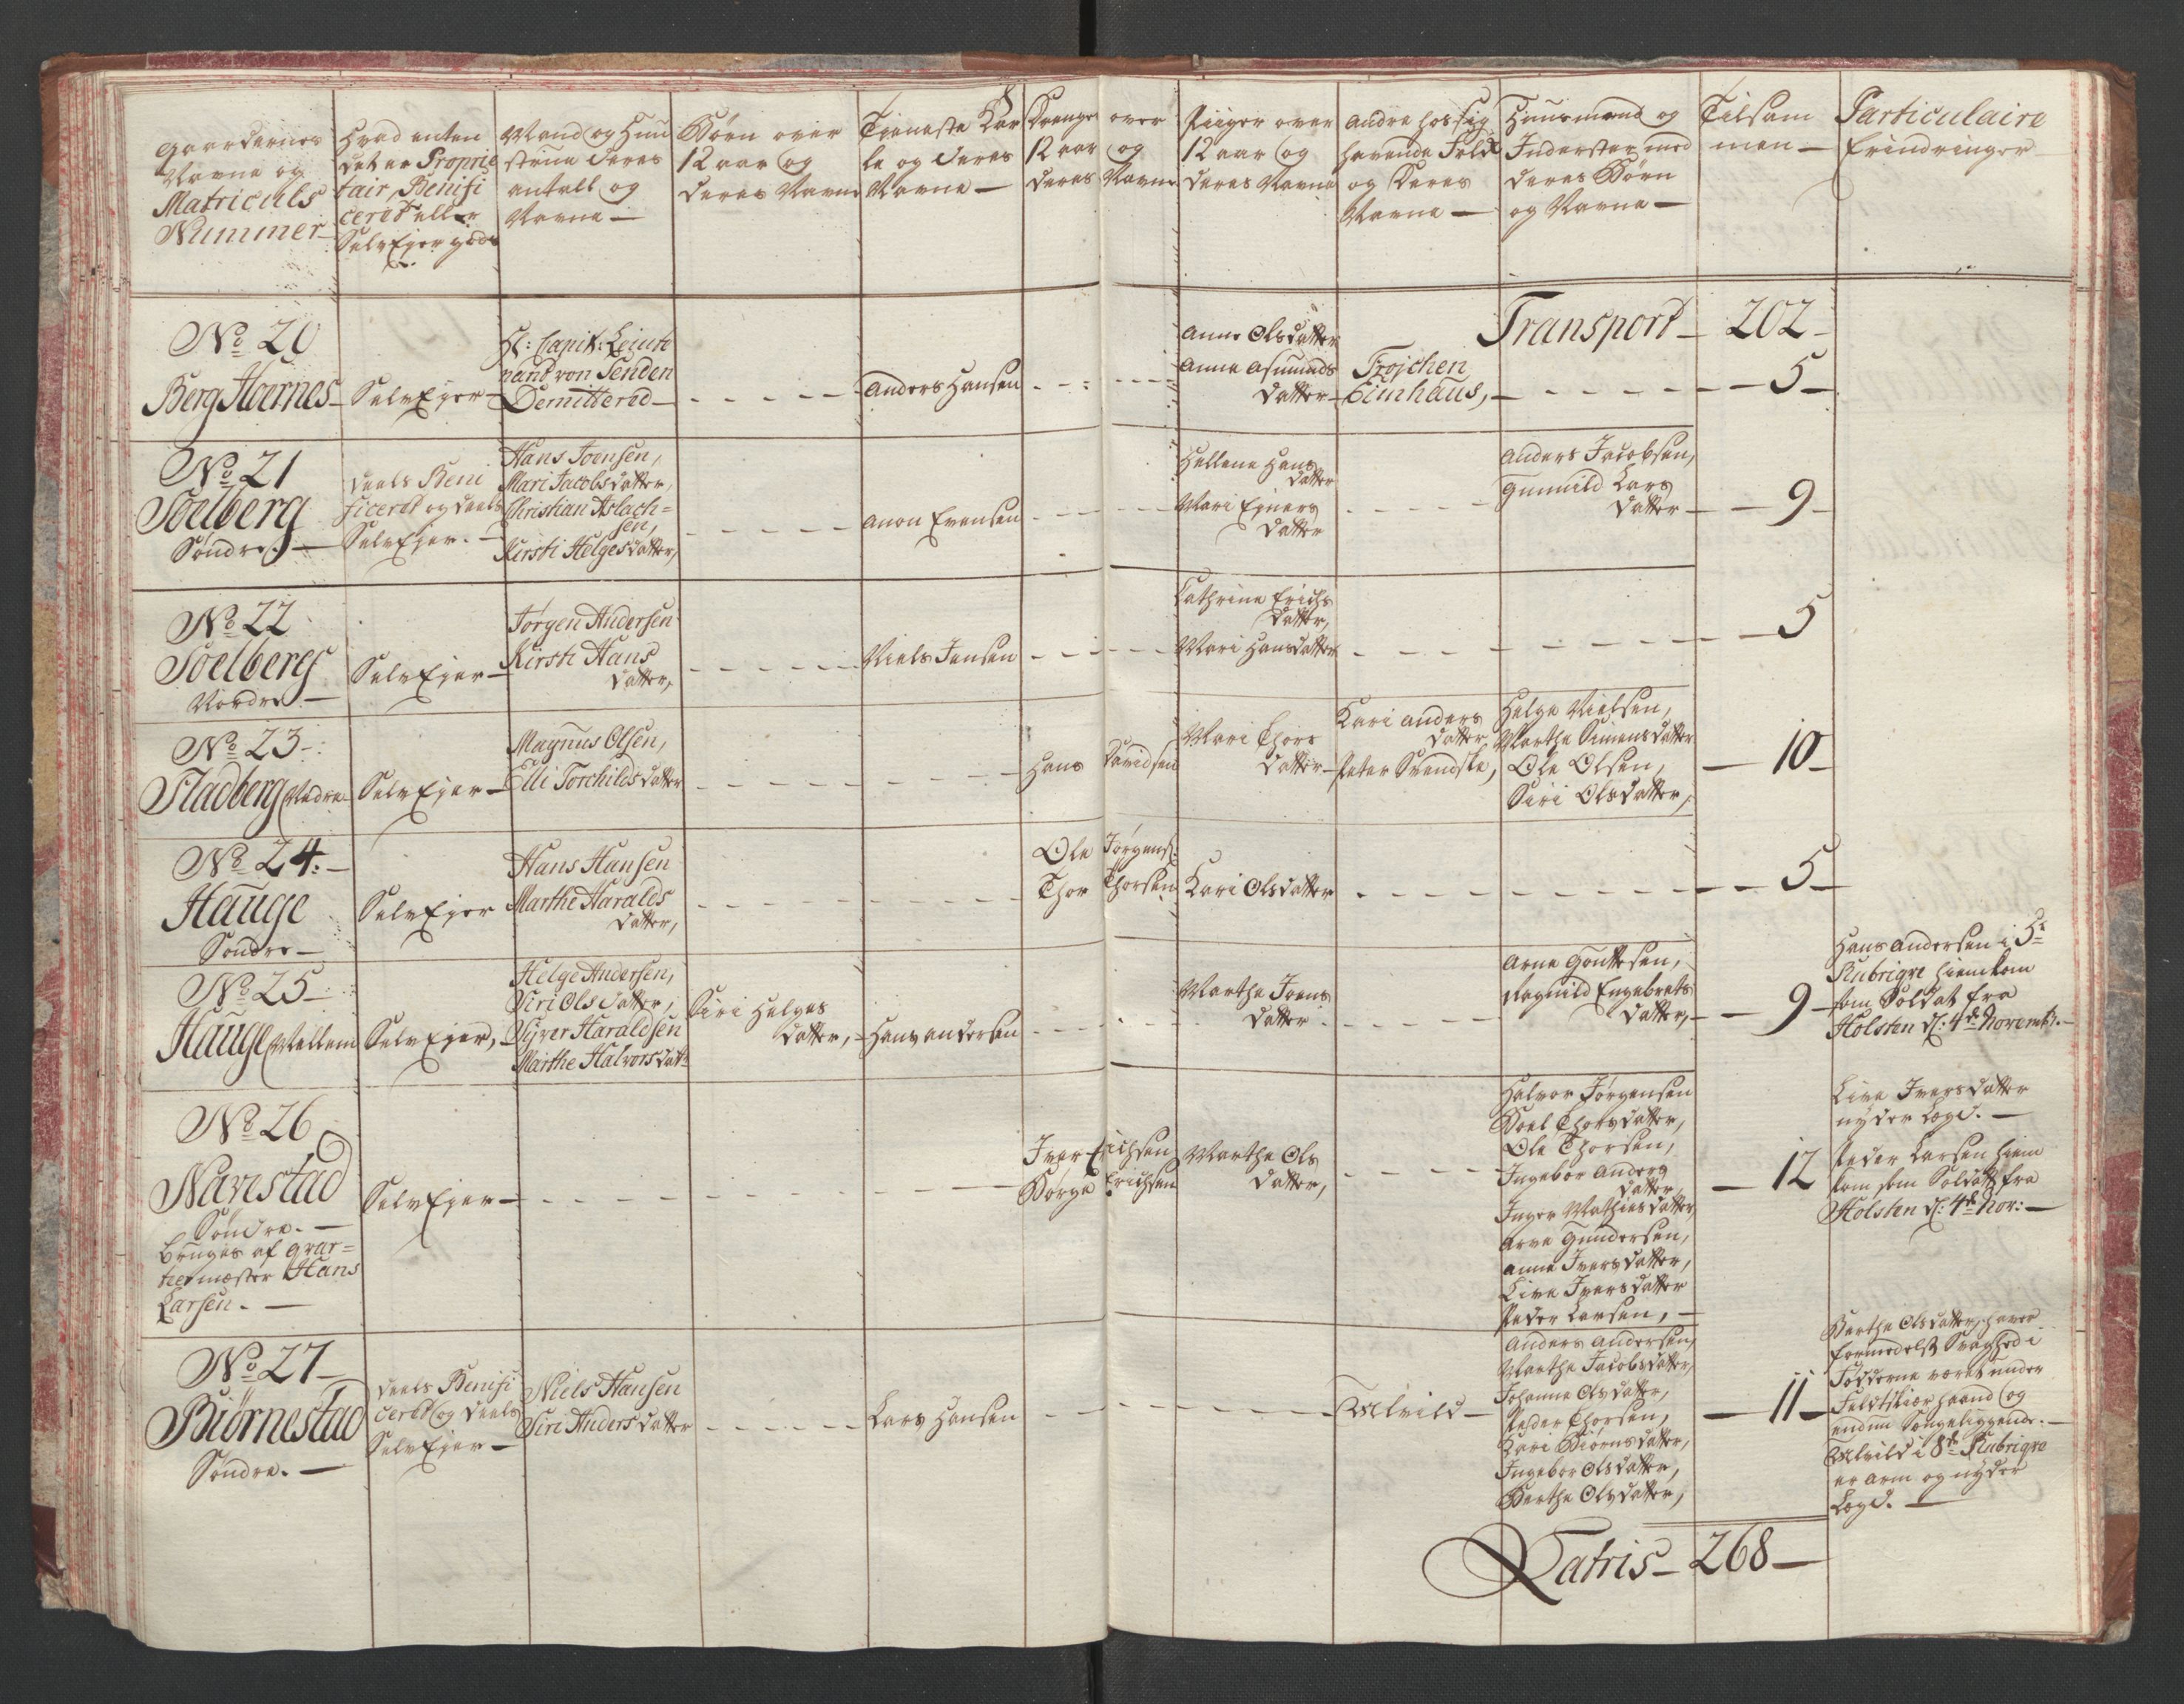 Gaardernes
Navne og
Matriculs
Nummer
Hvad enten
det er Proprie
tair, Benifi
ceret eller
SelvEyer gods
Mand og Huu
strue deres
antall og
Navne —
Børn over
12 aar og
deres Navne
Tieneste Kar
le og deres
Navne —
Drenge over
12 aar og
deres Navne
Piiger over
12 aar og
deres Navne
Andre hos sig
havende Folk
og deres
Navne —
Huusmænd og
Inderster med
deres Børn
og Navne —
Tilsam
men —
Particulaire
Erindringer
Transport — 202 —
No 20
Berg Hoernes —
SelvEyer —
Hr: Capit: Leiute
nant von Senden
Demittered —
Anders Hansen
Anne Olsdatter
Anne Asmunds
datter —
Frøjchen
Eimhaus,
5 —
No 21
Soelberg
Søndre. —
deels Beni
ficeret og deels
SelvEyer. —
Hans Joensen,
Mari Jacobsdatter,
Christian Aslach=
sen,
Kirsti Helgesdatter,
Anon Evensen
Hellene Hans
datter
Mari Eyners
datter
Anders Jacobsen,
Gunnild Lars
datter —
9 —
No 22
Soelberg
Nordre —
SelvEyer —
Jørgen Andersen
Kirsti Hans
datter,
Niels Jensen
Cathrine Erichs
datter,
Mari Hansdatter
5
No 23 —
Stadberg Nedre —
SelvEyer —
Magnus Olsen,
Elli Torchildsdatter
Hans Davidsen
Mari Thors
datter —
Kari Anders
datter
Peter Svendske,
Helge Nielsen,
Marthe Simensdatter
Ole Olsen,
Siri Olsdatter,
10 —
No 24: —
Hauge
Søndre —
SelvEyer
Hans Hansen
Marthe Haralds
datter,
Ole Jørgens:
Thor Thorsen
Kari Olsdatter
5 —
No 25 —
Hauge Mellem
SelvEyer,
Helge Andersen,
Siri Olsdatter,
Syver Haraldsen
Marthe Halvorsdatr
Siri Helges
datter,
Hans Andersen
Marthe Joens
datter
Arne Gouttesen,
Ragnild Engebrets
datter,
9 —
Hans Andersen i 5te
Rubriqve hiemkom
som Soldat fra
Holsten d: 4de Novemb: —
No 26
Narestad
Søndre. —
bruges af Qvar=
teermæster Hans
Larsen. —
SelvEyer —
Iver Erichsen
Børge Erichsen
Marthe Ols
datter,
Halvor Jørgensen
Boel Thorsdatter,
Ole Thorsen,
Ingebor Anders
datter,
Inger Mathiesdatter
Arve Gundersen,
Anne Iversdatter,
Live Iversdatter
Peder Larsen, —
12
Live Iversdatter
nyder Legd. —
Peder Larsen hiem
kom som Soldatt fra
Holsten d: 4de Nov: —
No 27 —
Biørnestad
Søndre. —
deels Benifi
ceret og deels
SelvEyer —
Niels Hansen
Siri Andersdatter
Lars Hansen
Alvild —
Anders Andersen,
Marthe Jacobsdatter,
Johanne Olsdatter,
Peder Thorsen,
Kari Biørnsdatter,
Ingebor Olsdatter,
Berthe Olsdatter,
11 —
Berthe Olsdatter, haver
formedelst Svaghed i
Fødderne været under
Feldtskiær haand og
endnu Sengeliggende. —
Alvild i 8de Rubriqve
er arm og nyder
Legd. —
Latris — 268 —